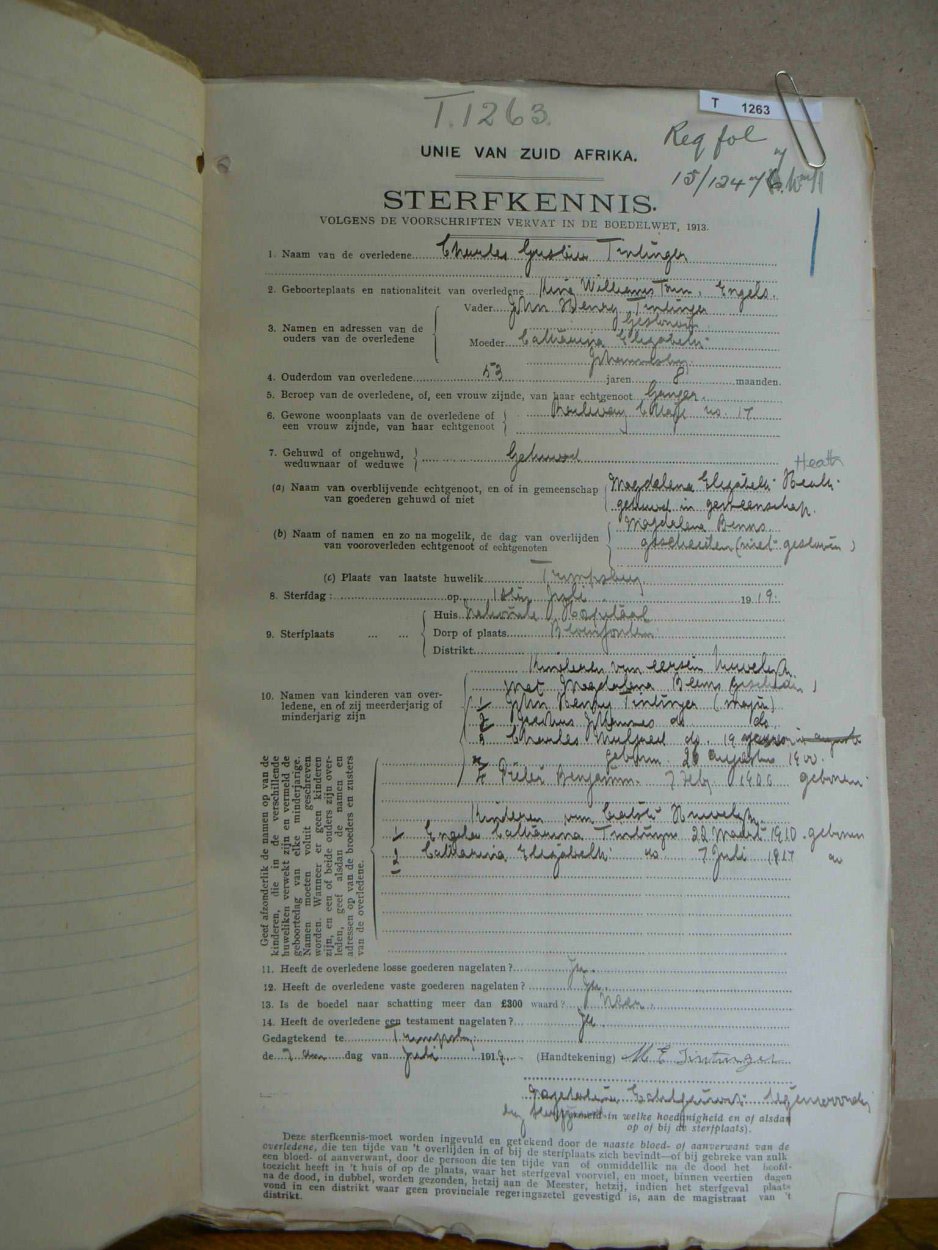 T 1263
T.1263.
Req fol
15/124
UNIE VAN ZUID AFRIKA.
STERFKENNIS.
VOLGENS DE VOORSCHRIFTEN VERVAT IN DE BOEDELWET, 1913.
1. Naam van de overledene Charles Tintinger
2. Geboorteplaats en nationaliteit van overledene King Williams Town. Engels.
Vader John Henry Tintinger
Gestorven
3. Namen en adressen van de
ouders van de overledene
Moeder Catharina Elizabeth
Johannesburg
4. Ouderdom van overledene 53 jaren 8 maanden.
5. Beroep van de overledene, of, een vrouw zijnde, van haar echtgenoot Ganger.
6. Gewone woonplaats van de overledene of
een vrouw zijnde, van haar echtgenoot
Railway Cottage no. 17
7. Gehuwd of ongehuwd,
weduwnaar of weduwe
Gehuwd
Heath
(a) Naam van overblijvende echtgenoot, en of in gemeenschap
van goederen gehuwd of niet
Magdalena Elizabeth Heath
gehuwd in gemeenschap.
(b) Naam of namen en zo na mogelik, de dag van overlijden
van vooroverleden echtgenoot of echtgenoten
Magdalena
gescheiden (niet gestorven)
(c) Plaats van laatste huwelik Trompsburg
8. Sterfdag: op Juli 1919.
9. Sterfplaats ... ...
Huis Nationale Hospitaal
Dorp of plaats Bloemfontein
Distrikt
10. Namen van kinderen van over-
ledene, en of zij meerderjarig of
minderjarig zijn
Kinderen van eerste huwelik
met Magdalena gescheiden)
1 John Henry Tintinger (major)
2 Johannes do do
3 Charles do. 19
geboren 26 Augustus 1900.
4 Pieter Benjamin. 7 Feb. geboren
Geef afzonderlik de namen op van de
kinderen, die in de verschillende
huweliken verwekt zijn en vermeld de
geboortedag van elke minderjarige.
Namen moeten voluit geschreven
worden. Wanneer er geen kinderen
zijn, en een of beide ouders zijn over-
leden, geef alsdan de namen en
adressen op van de broeders en zusters
van de overledene.
Kinderen van laatste Huwelijk
1 Engela Catharina Tintinger 22 Maart 1910 geboren
2 Catharina Elizabeth do 7 Juli 1917 do
11. Heeft de overledene losse goederen nagelaten? Ja.
12. Heeft de overledene vaste goederen nagelaten? Ja.
13. Is de boedel naar schatting meer dan £300 waard? Neen.
14. Heeft de overledene een testament nagelaten? Ja
Gedagtekend te Trompsburg
de dag van Juli 1919. (Handtekening) M E Tintinger
Nagelaten Echtgenote tegenwoordig
in welke hoedanigheid en of alsdan
op of bij de sterfplaats).
Deze sterfkennis moet worden ingevuld en getekend door de naaste bloed- of aanverwant van de
overledene, die ten tijde van 't overlijden in of bij de sterfplaats zich bevindt—of bij gebreke van zulk
een bloed- of aanverwant, door de persoon die ten tijde van of onmiddellik na de dood het hoofd-
toezicht heeft in 't huis of op de plaats, waar het sterfgeval voorviel, en moet, binnen veertien dagen
na de dood, in dubbel, worden gezonden, hetzij aan de Meester, hetzij, indien het sterfgeval plaats
vond in een distrikt waar geen provinciale regeringszetel gevestigd is, aan de magistraat van 't
distrikt.